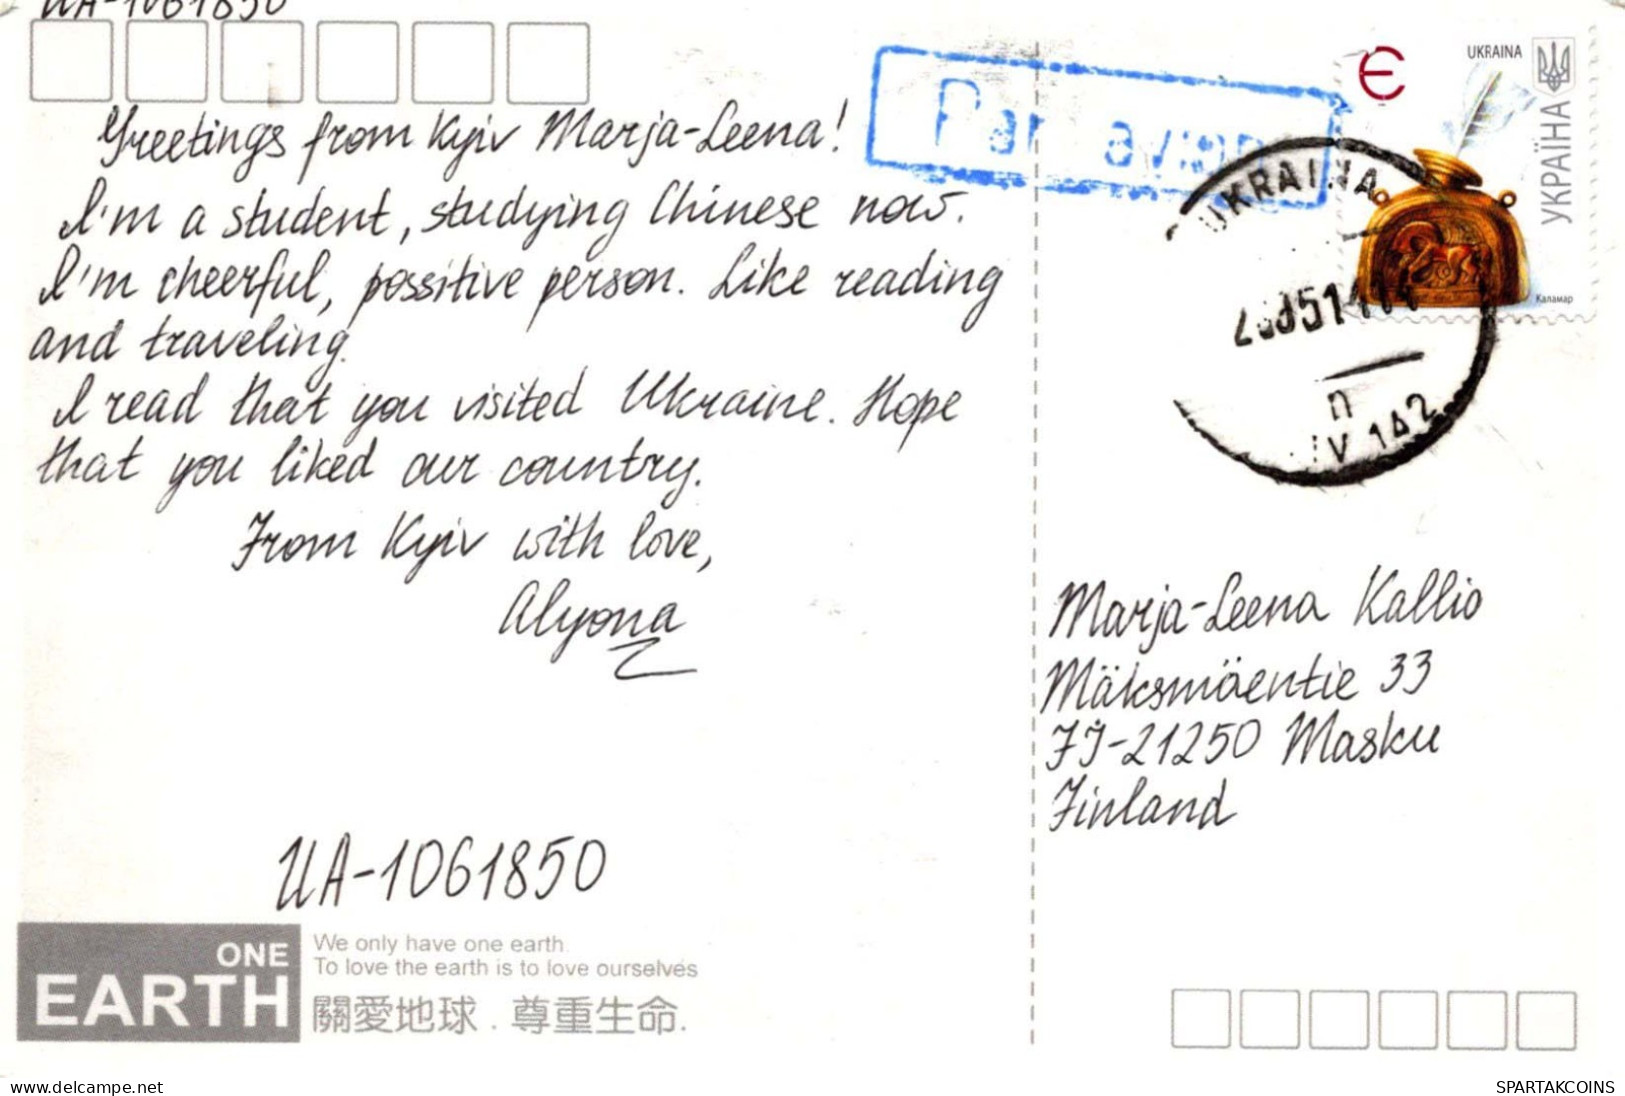 UA-1061850
Greetings from Kyiv Marja-Leena!
I'm a student, studying Chinese now.
I'm cheerful, possitive person. Like reading
and traveling.
I read that you visited Ukraine. Hope
that you liked our country.
From Kyiv with love,
Alyona
UA-1061850
ONE
EARTH
We only have one earth.
To love the earth is to love ourselves
關愛地球 . 尊重生命.
Par avion
Є
UKRAINA
УКРАЇНА
Каламар
UKRAINA
142
Marja-Leena Kallio
Mäksmäentie 33
FI-21250 Masku
Finland
www.delcampe.net
SPARTAKCOINS